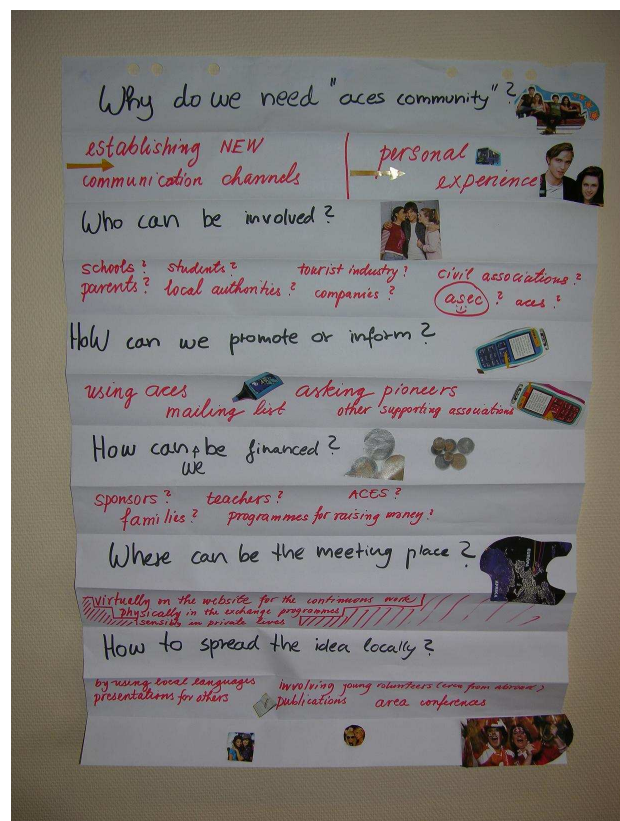 Why do we need "aces community"?
establishing NEW
communication channels
personal
experience
Who can be involved?
schools? students? tourist industry? civil associations?
parents? local authorities? companies? asec? aces?
HoW can we promote or inform?
using aces
mailing list
asking pioneers
other supporting associations
How can be financed?
we
sponsors? teachers? ACES?
families? programmes for raising money?
Where can be the meeting place?
virtually on the website for the continuous work
physically in the exchange programmes
sensibly in private lives
How to spread the idea locally?
by using local languages
presentations for others
involving young volunteers (even from abroad)
publications area conferences